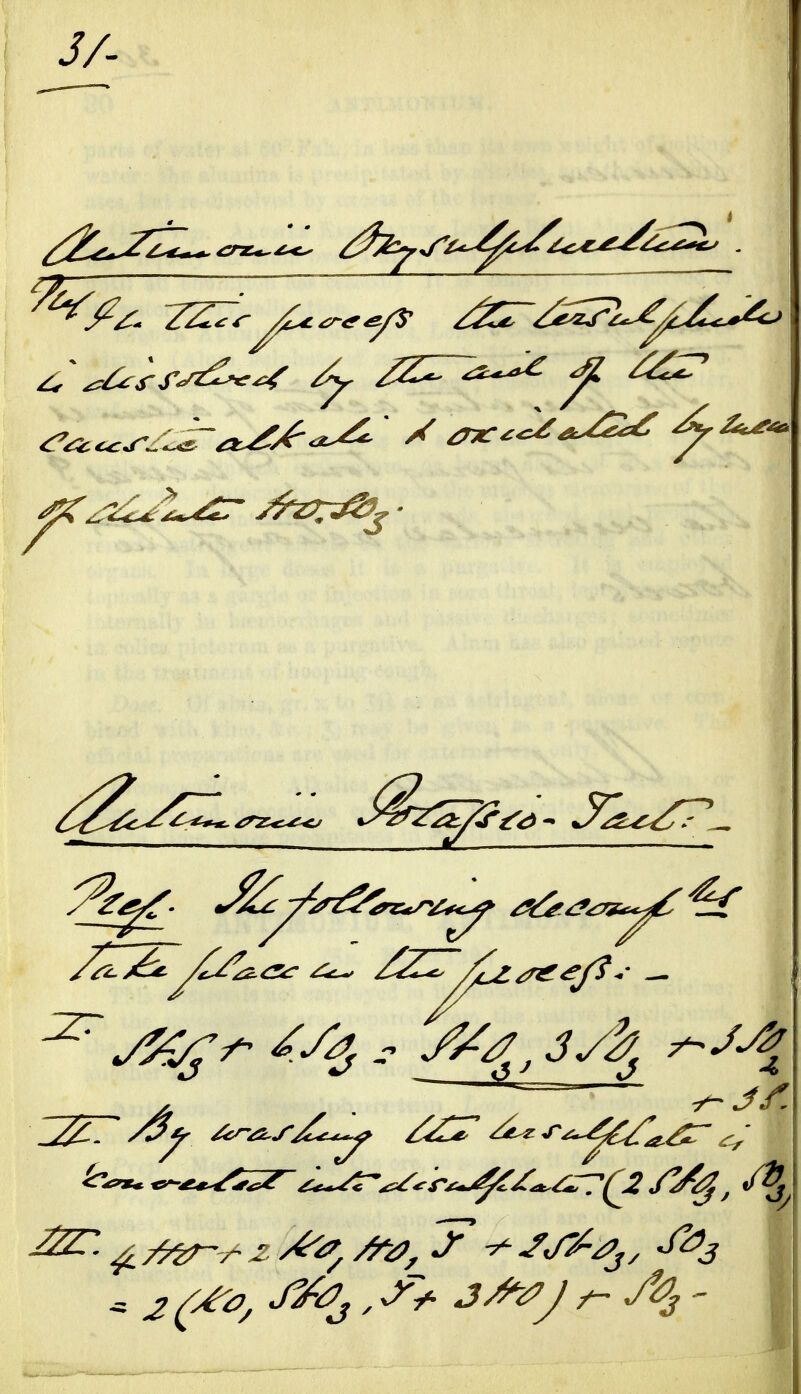 31-
Antimonii Oxysulphuretum.
In this process the tersulphide
is dissolved by the aid of the
caustic alkali & oxidated by
of dilute HO.SO3.
Antimonii Potassio-Tart: -
Prep. The following decomp
take place in the process :-
I. SbS3 + 6SO3 = SbO3, 3SO3 + 3SO2
+ 3S.
II. By washing the tersulphate is
converted into disulphate (2SbO3, SO3
III. 4HO + 2 KO, HO, T + 2SbO3, SO3
= 2(KO, SbO3, T + 3HO) + SO3 -